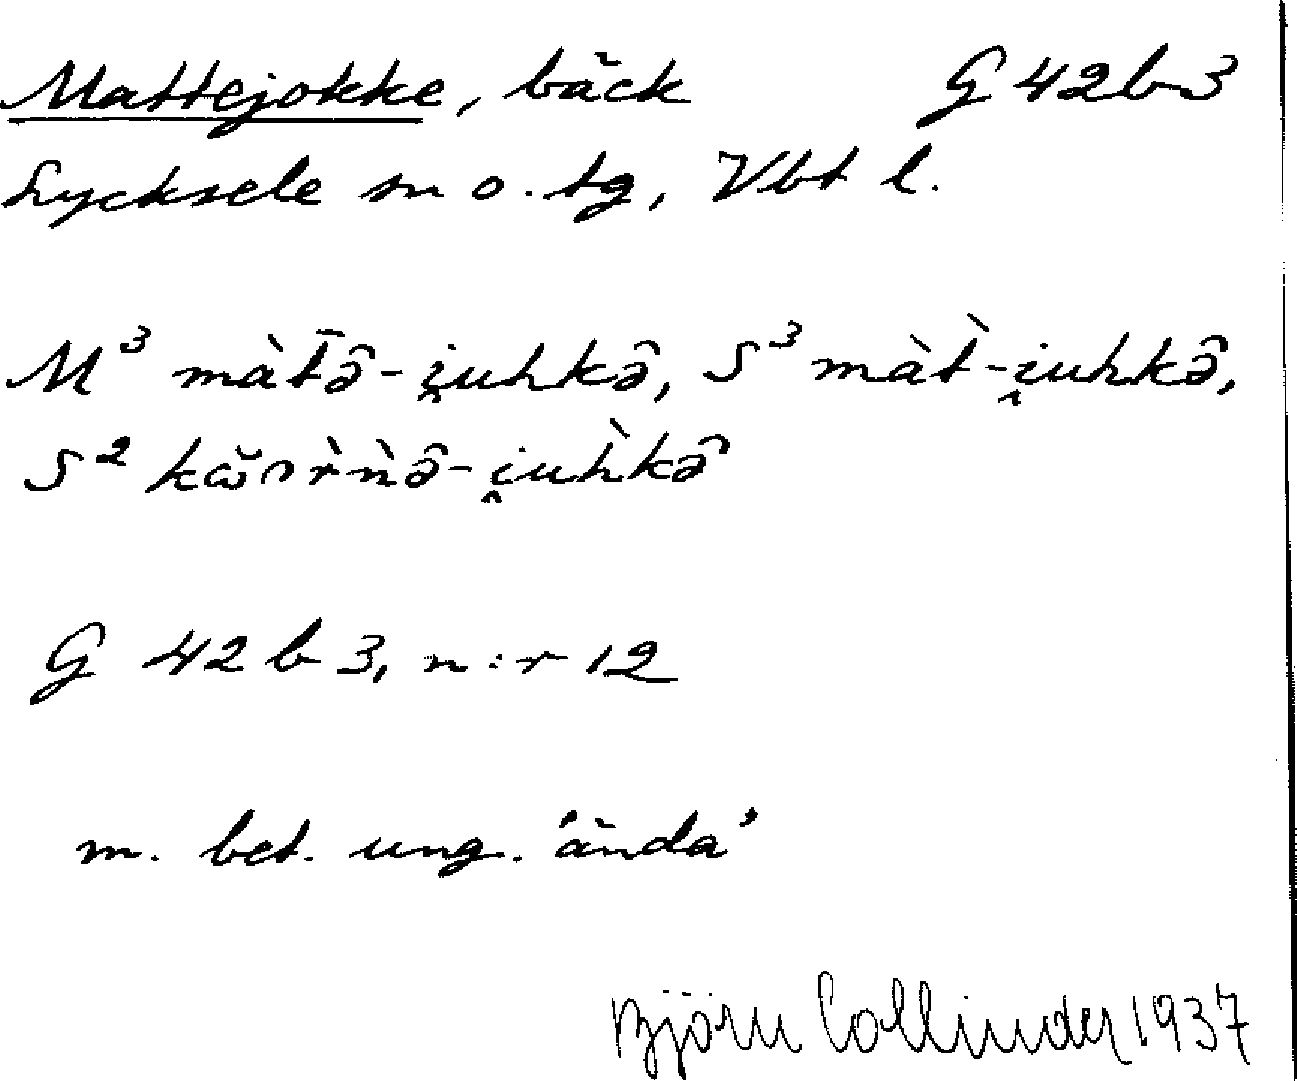 Mattejokke, bäck G 42 b 3
Lycksele sn o. tg, Vbt l.
M³ màt̄ə̑-i̯uhkə̑, S³ màt̀-i̯uhkə̑,
S² kω̆ɔr̀ǹə̑-i̯uh̀kə̑
G 42 b 3, n:r 12
m. bet. ung. 'ända'
Björn Collinder 1937